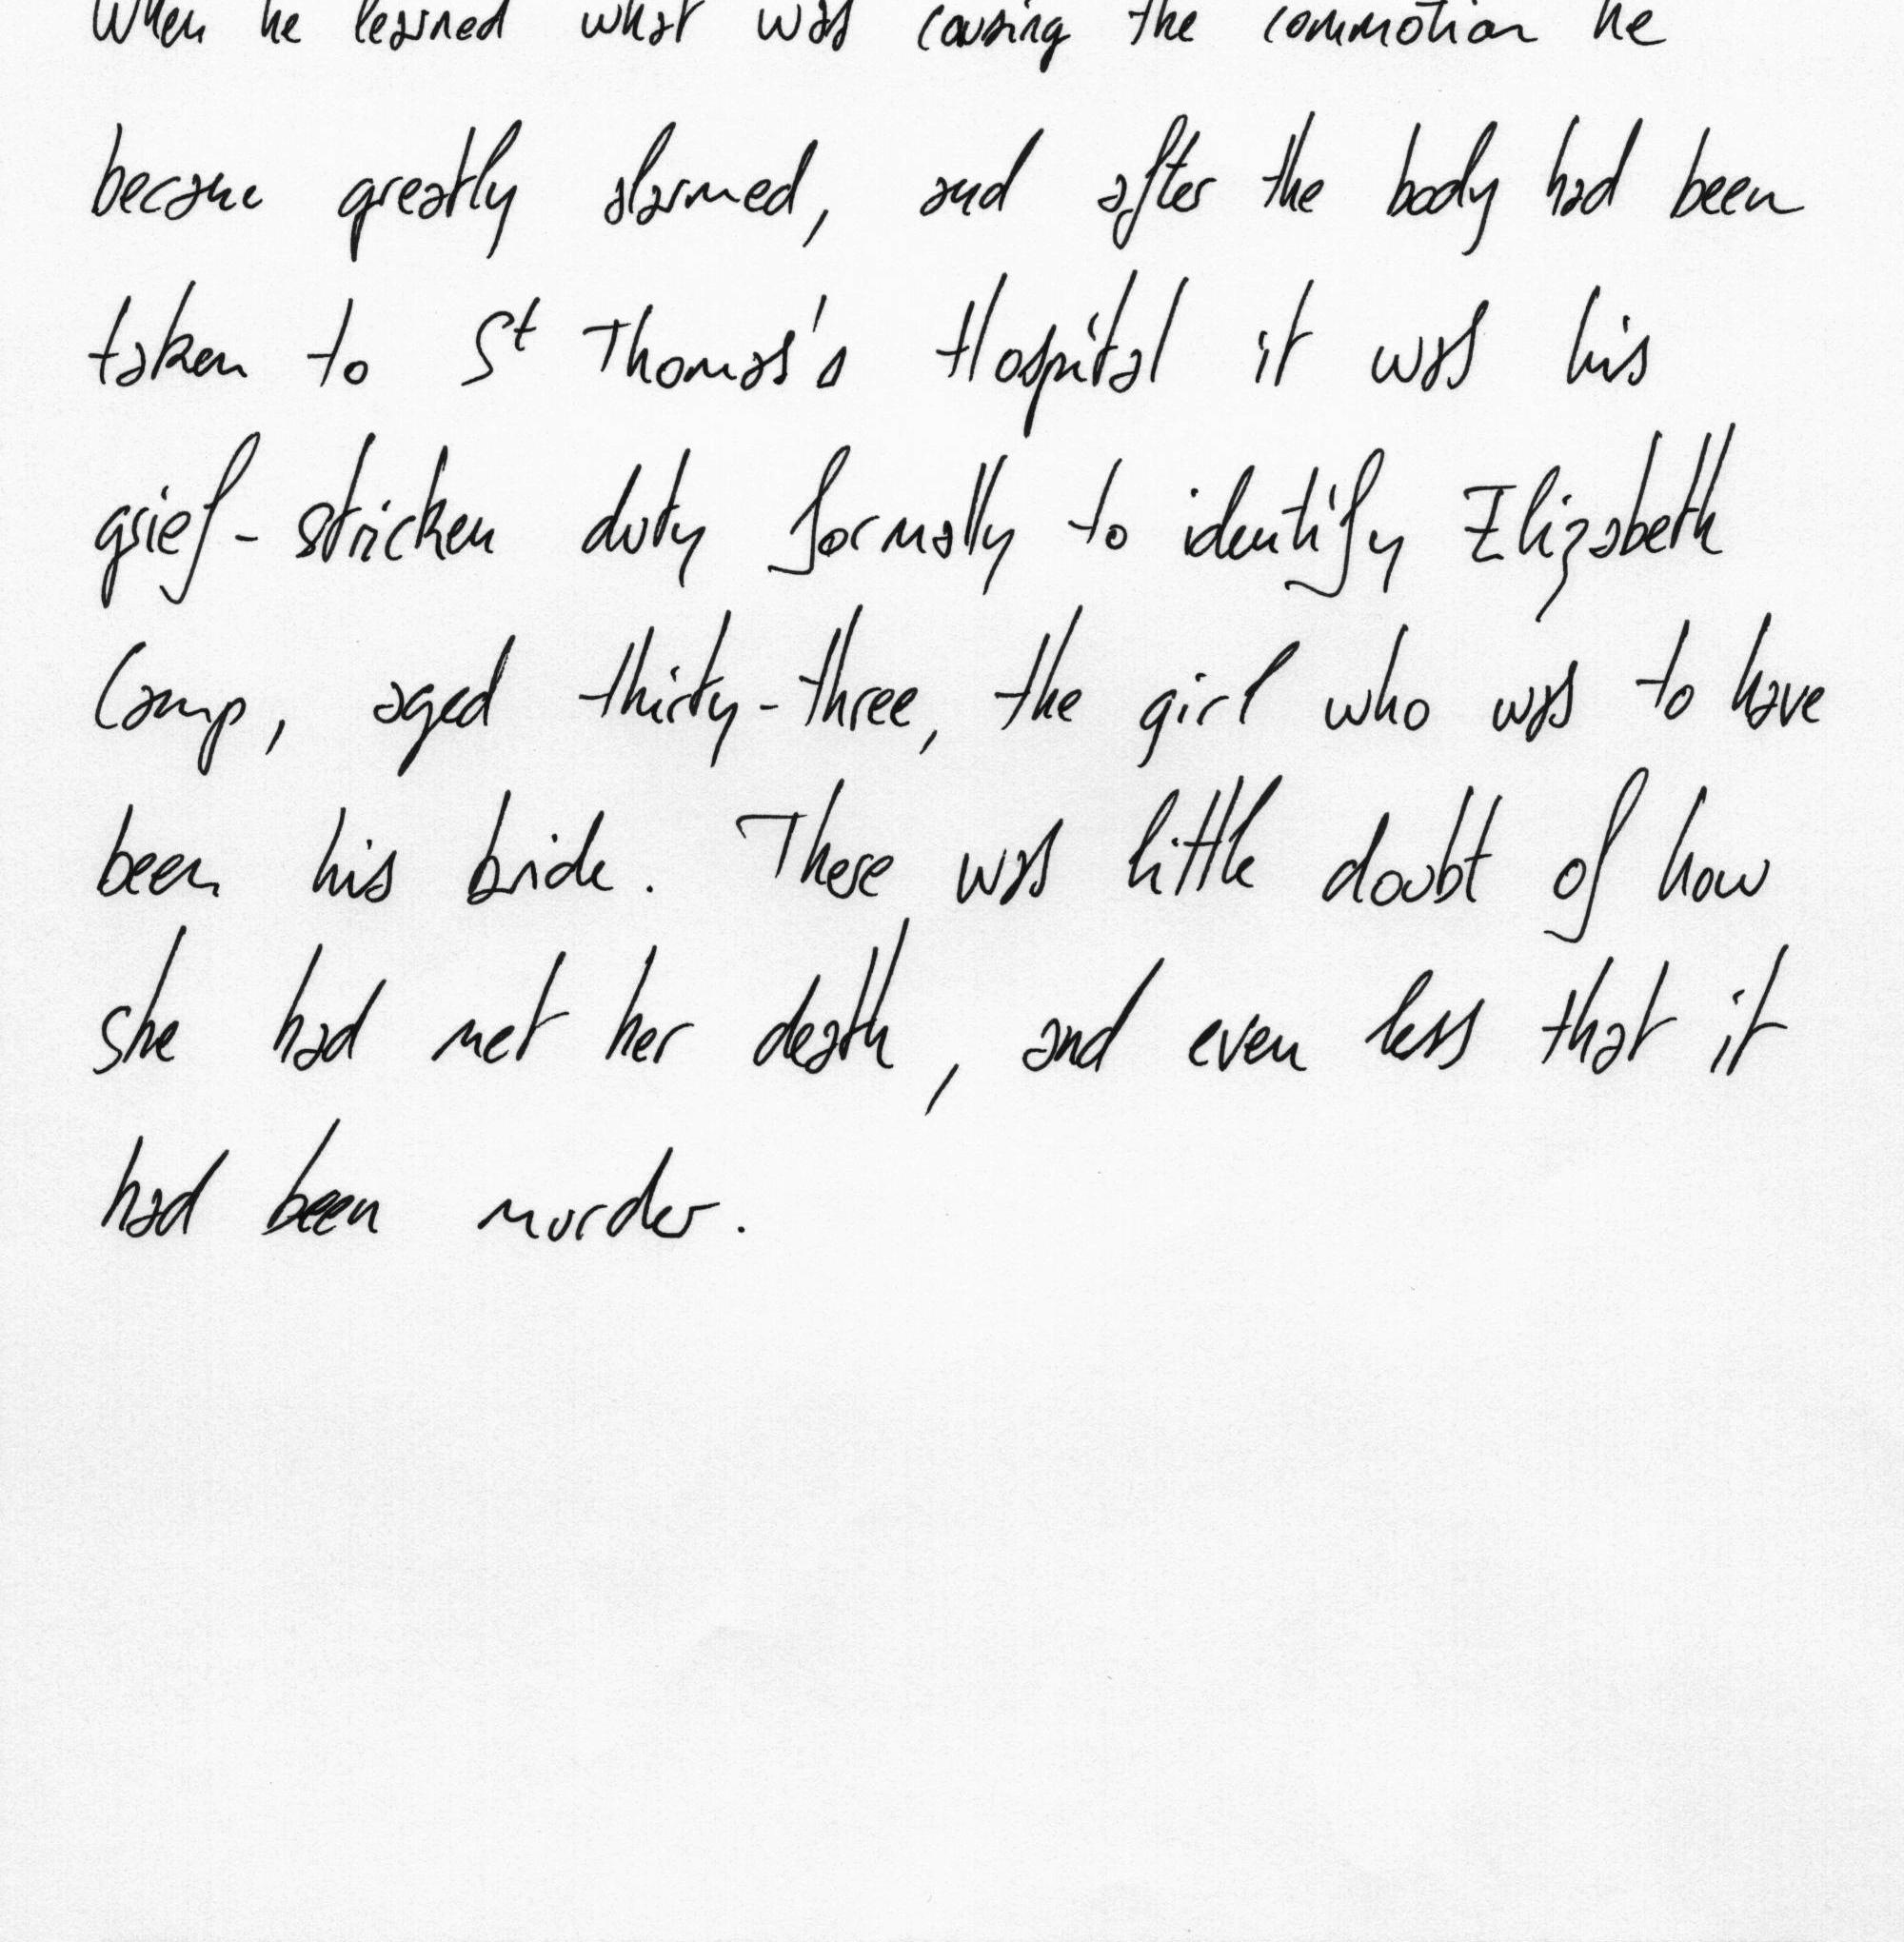 When he learned what was causing the commotion he
became greatly alarmed, and after the body had been
taken to St Thomas's Hospital it was his
grief-stricken duty formally to identify Elizabeth
Camp, aged thirty-three, the girl who was to have
been his bride. There was little doubt of how
she had met her death, and even less that it
had been murder.